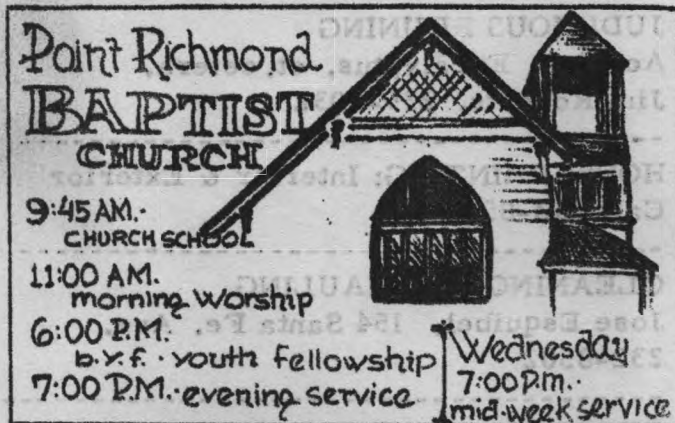 Point Richmond
BAPTIST
CHURCH
9:45 AM.
CHURCH SCHOOL
11:00 AM.
morning worship
6:00 P.M.
b.y.f. youth fellowship
7:00 P.M. evening service
Wednesday
7:00 P.m.
mid-week service